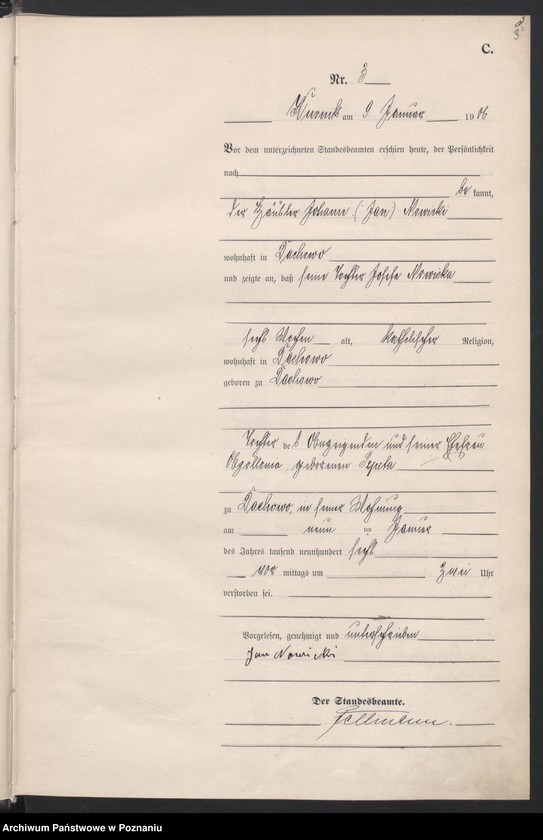 C.
Nr. 3
Kurnik am 9 Januar 1906
Vor dem unterzeichneten Standesbeamten erschien heute, der Persönlichkeit
nach
be kannt,
der Häusler Johann (Jan) Nowicki
wohnhaft in Dachowo
und zeigte an, daß seine Tochter Josefa Nowicka
sechs Wochen alt, katholischer Religion,
wohnhaft in Dachowo
geboren zu Dachowo
Tochter des Anzeigenden und seiner Ehefrau
Apollonia, geborenen
zu Dachowo, in seiner Wohnung
am neun ten Januar
des Jahres tausend neunhundert sechs
vor mittags um zwei Uhr
verstorben sei.
Vorgelesen, genehmigt und unterschrieben
Jan Nowicki
Der Standesbeamte.
Archiwum Państwowe w Poznaniu